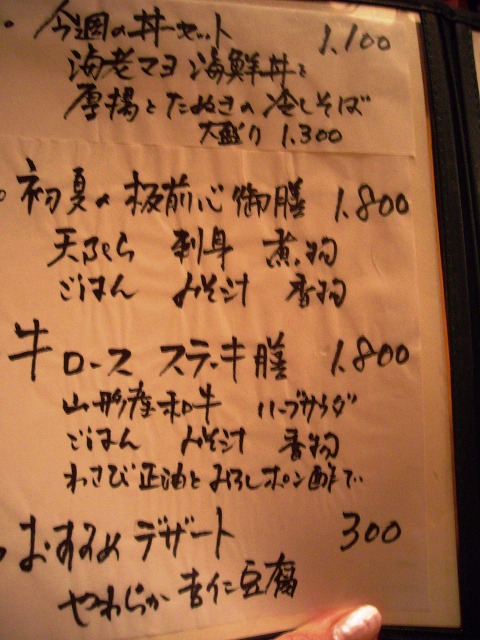 今週の丼セット 1.100
海老マヨ 海鮮丼と
厚揚とたぬきの冷しそば
大盛り 1.300
初夏の板前心御膳 1.800
天ぷら 刺身 煮物
ごはん みそ汁 香物
牛ロース ステーキ膳 1.800
山形産和牛 ハーブサラダ
ごはん みそ汁 香物
わさび正油とおろしポン酢で
おすすめデザート 300
やわらか杏仁豆腐